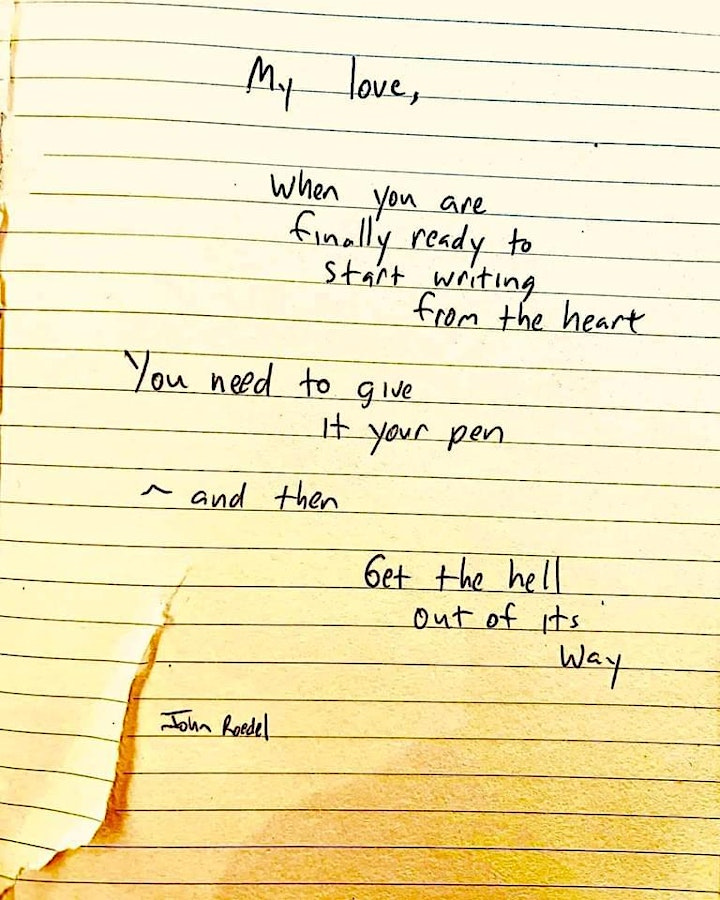 My love,
When you are
finally ready to
start writing
from the heart
You need to give
it your pen
~ and then
Get the hell
out of its
way
John Roedel